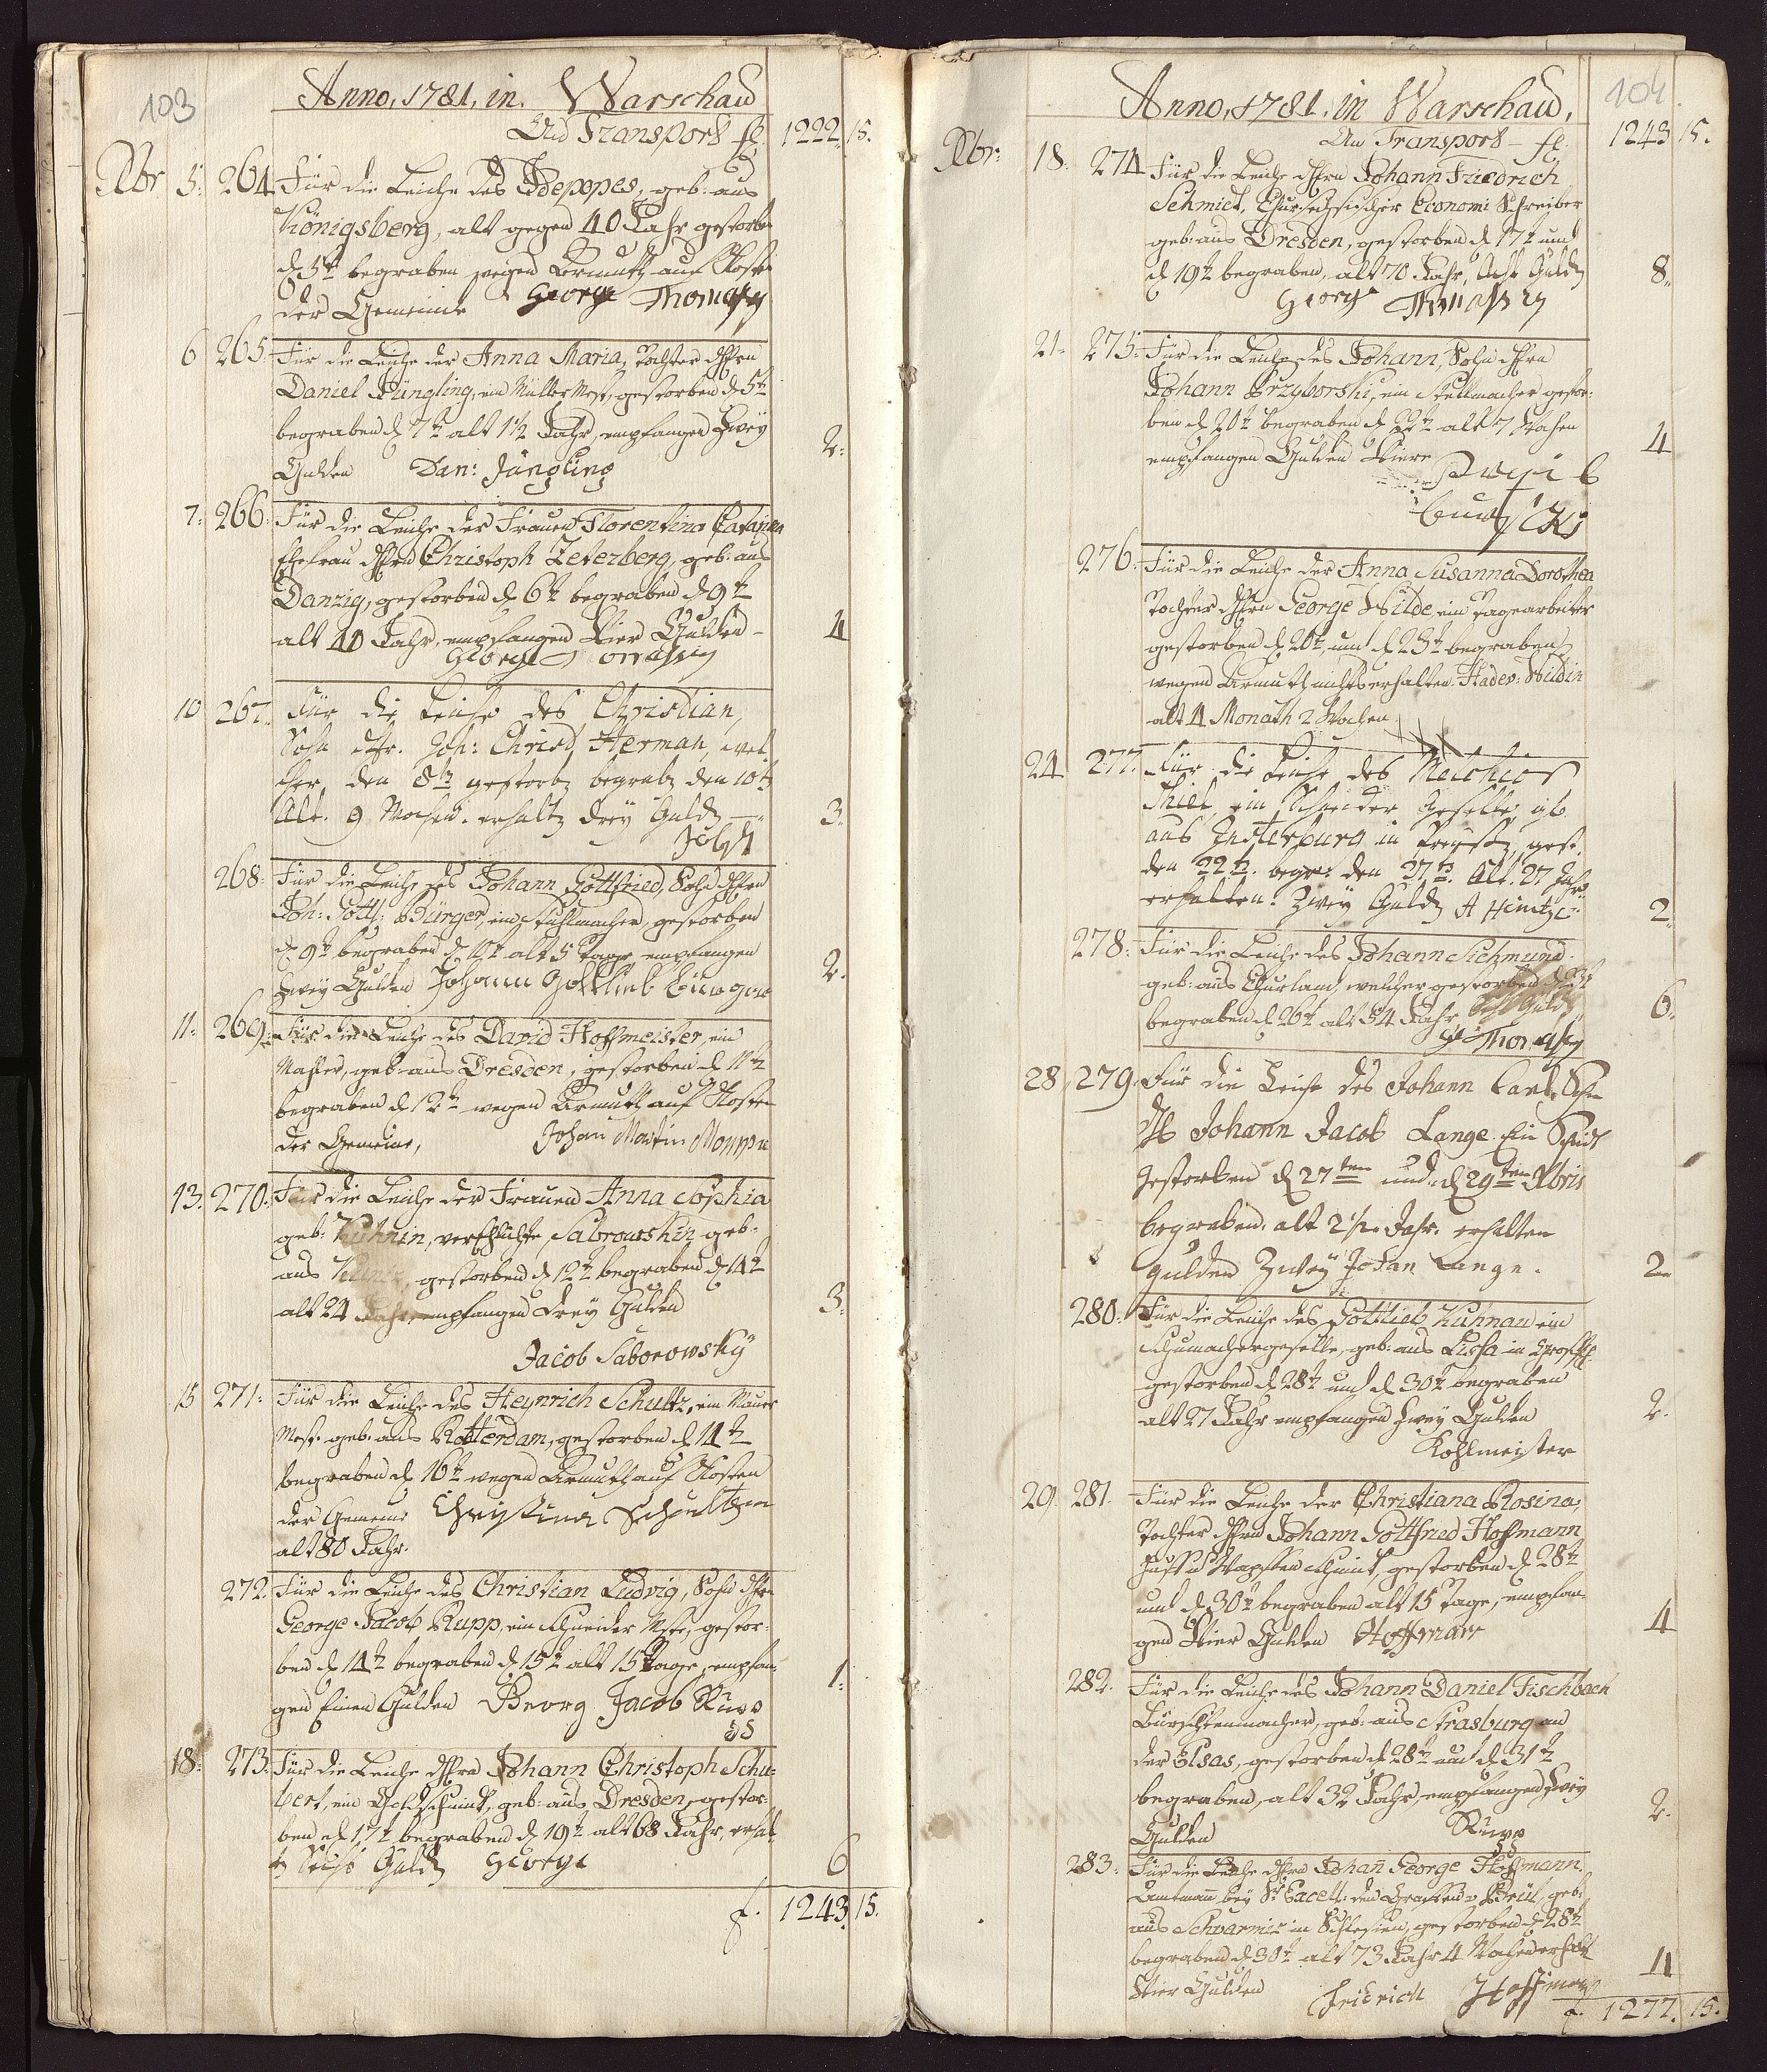 103
Anno, 1781, in. Warschau
An Transport fl: 1222. 15.
Xbr 5: 264. Für die Leiche des Pdepopes, geb: aus
Königsberg, alt gegen 40 Jahr gestorben
d 5t begraben wegen Armuth auf Kosten
der Gemeinde George Thomassy
6 265: Für die Leiche der Anna Maria, Tochter dHrn
Daniel Jüngling, ein Müller Mstr, gestorben d 5t
begraben d 7t alt 1½ Jahr, empfangen Zwey 2:
Gulden Dan: Jüngling
7: 266: Für die Leiche der Frauen Florentina
Ehefrau dHrn Christoph Zeterberg, geb: aus
Danzig, gestorben d 6t begraben d 9t
alt 40 Jahr, empfangen Vier Gulden 4
George
10 267. Für die Leiche des Christian,
Sohn dHr. Joh: Christ Herman, wel
cher den 8t gestorb begrab den 10t
Alt. 9 Wochen. erhalt drey Guld 3.
268: Für die Leiche des Johann Gottfried, Sohn dHrn
Joh: Gottl: Bürger, ein Stuhlmacher, gestorben
d 9t begraben d 10t alt 5 Tage empfangen
Zwey Gulden Johann Gottlieb 2.
11: 269: Für die Leiche des David Hoffmeister, ein
Mahler, geb: aus Dresden, gestorben d 11t
begraben d 12t wegen Armuth auf Kosten
der Gemeine, Johan Martin
13: 270: Für die Leiche der Frauen Anna Sophia
geb: Kuhnin, verehlichte Sabrowskin geb:
aus gestorben d 12t begraben d 14t
alt 24 Jahr empfangen drey Gulden 3:
Jacob Saborowsky
15 271: Für die Leiche des Heynrich Schultz, ein Maurer
Mstr. geb: aus Rotterdam, gestorben d 14t
begraben d 16t wegen Armuth auf Kosten
der Gemeine Christina Schultzen
alt 80 Jahr.
272. Für die Leiche des Christian Ludvig, Sohn dHrn
George Jacob Rupp, ein Schneider Mstr, gestor=
ben d 14t begraben d 15t alt 15 Tage, empfan= 1:
gen Einen Gulden Georg Jacob Rupp
18: 273: Für die Leiche dHrn Johann Christoph Schu=
bert, ein Goldschmidt, geb: aus Dresden, gestor=
ben d 17t begraben d 19t alt 68 Jahr, erhal
t Sechs Guld George 6
f. 1243. 15.
104
Anno, 1781. in Warschau,
An Transport – fl: 1243 15.
Xbr: 18: 274 Für die Leiche dHrn Johann Friedrich
Schmidt, Chursechsischer Economi Schreiber
geb: aus Dresden, gestorben d 17t und
d 19t begraben, alt 70 Jahr, Acht Guld 8.
George Thomassy
21: 275: Für die Leiche des Johann, Sohn dHrn
Johann Przyborski, ein Stellmacher gestor=
ben d 20t begraben d 22t alt 7 Wochen
empfangen Gulden Viere 4
276: Für die Leiche der Anna Susanna Dorothea
Tochter dHrn George Wilde, ein Tagearbeiter
gestorben d 20t, und d 23t begraben
wegen Armuth nichts erhalten. Wildin
alt 4 Monath 2 Wochen
24 277. Für die Leiche des Melchior
Thiel ein Schneider Geselle, geb.
aus Insterburg in Preuß gest.
den 22t. begr: den 27t. Alt. 27 Jahr
erhalten. Zwey Guld A Hintze 2
278: Für die Leiche des Johann Sichmund
geb: aus Churland, welcher gestorben d
begraben d 26t alt 54 Jahr Sechs Guld 6.
G: Thomassy
28 279. Für die Leiche des Johann Carl. Sohn
dH Johann Jacob Lange. Ein Schmidt
Gestorben d 27ten und d 29ten Xbris
begraben. alt 2½ Jahr. erhalten
Gulden Zwey Johan Lange. 2
280: Für die Leiche des Gottlieb Kuhnau ein
Schumachergeselle, geb: aus Lissa in
gestorben d 28t und d 30t begraben
alt 27 Jahr empfangen Zwey Gulden 2.
Kohlmeister
29 281. Für die Leiche der Christiana Rosina,
Tochter dHrn Johann Gottfried Hoffmann
Huff u Wapffen Schmidt, gestorben d 28t
und d 30t begraben alt 15 Tage, empfan=
gen Vier Gulden Hoffmann 4
282. Für die Leiche des Johann Daniel Fischbach
Bürschtenmacher, geb: aus Strasburg an
der Elsas, gestorben d 28t und d 31t
begraben, alt 32 Jahr, empfangen Zwey 2.
Gulden Rupp
283: Für die Leiche dHrn Johañ George Hoffmann
Amtmañ bey Sr Excell: den Graffen v Brül, geb:
aus Schwarnitz in Schlesien, gestorben d 28t
begraben d 30t alt 73 Jahr 4 Wochen erhalt 4
Vier Gulden Fridrich Hoffmann
f. 1277. 15.